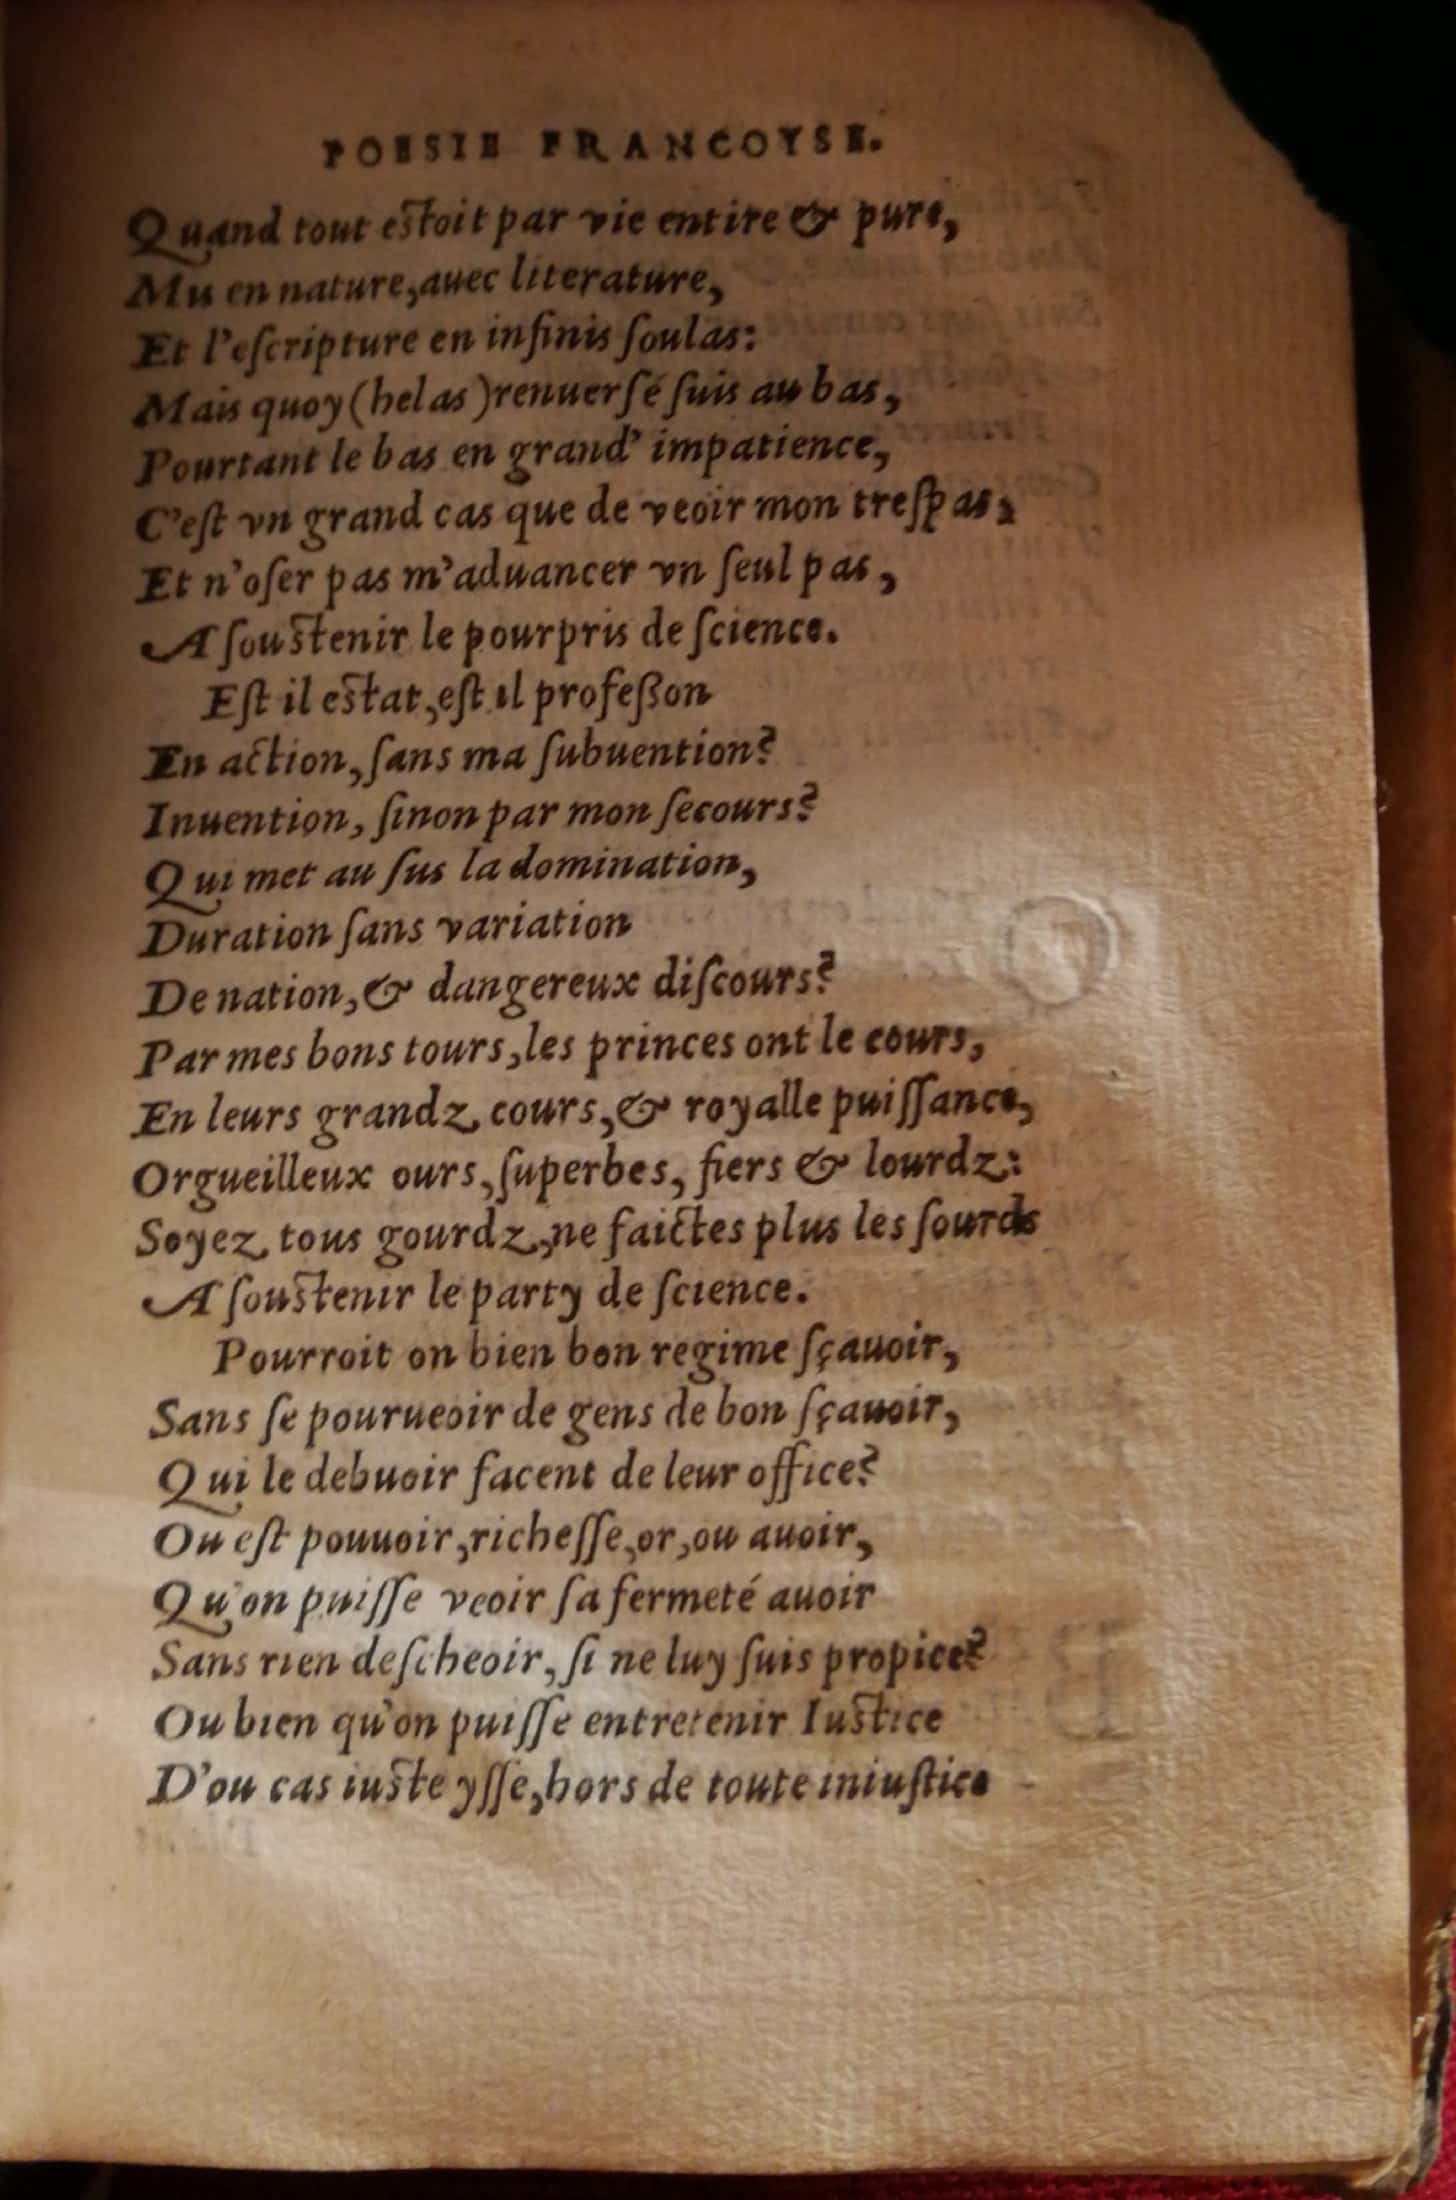 POESIE FRANCOYSE.
Quand tout estoit par vie entire & pure,
Mu en nature, auec literature,
Et l'eſcripture en infinis ſoulas:
Mais quoy (helas) renuerſé ſuis au bas,
Pourtant le bas en grand' impatience,
C'eſt vn grand cas que de veoir mon treſpas,
Et n'oſer pas m'aduancer vn ſeul pas,
A ſoustenir le pourpris de ſcience.
Eſt il estat, eſt il profeßon
En action, ſans ma ſubuention?
Inuention, ſinon par mon ſecours?
Qui met au ſus la domination,
Duration ſans variation
De nation, & dangereux diſcours?
Par mes bons tours, les princes ont le cours,
En leurs grandz cours, & royalle puiſſance,
Orgueilleux ours, ſuperbes, fiers & lourdz:
Soyez tous gourdz, ne faictes plus les ſourds
A ſoustenir le party de ſcience.
Pourroit on bien bon regime ſçauoir,
Sans ſe pourueoir de gens de bon ſçauoir,
Qui le debuoir facent de leur office?
Ou eſt pouuoir, richeſſe, or, ou auoir,
Qu'on puiſſe veoir ſa fermeté auoir
Sans rien deſcheoir, ſi ne luy ſuis propice?
Ou bien qu'on puiſſe entretenir Iustice
D'ou cas iuste yſſe, hors de toute iniuſtice